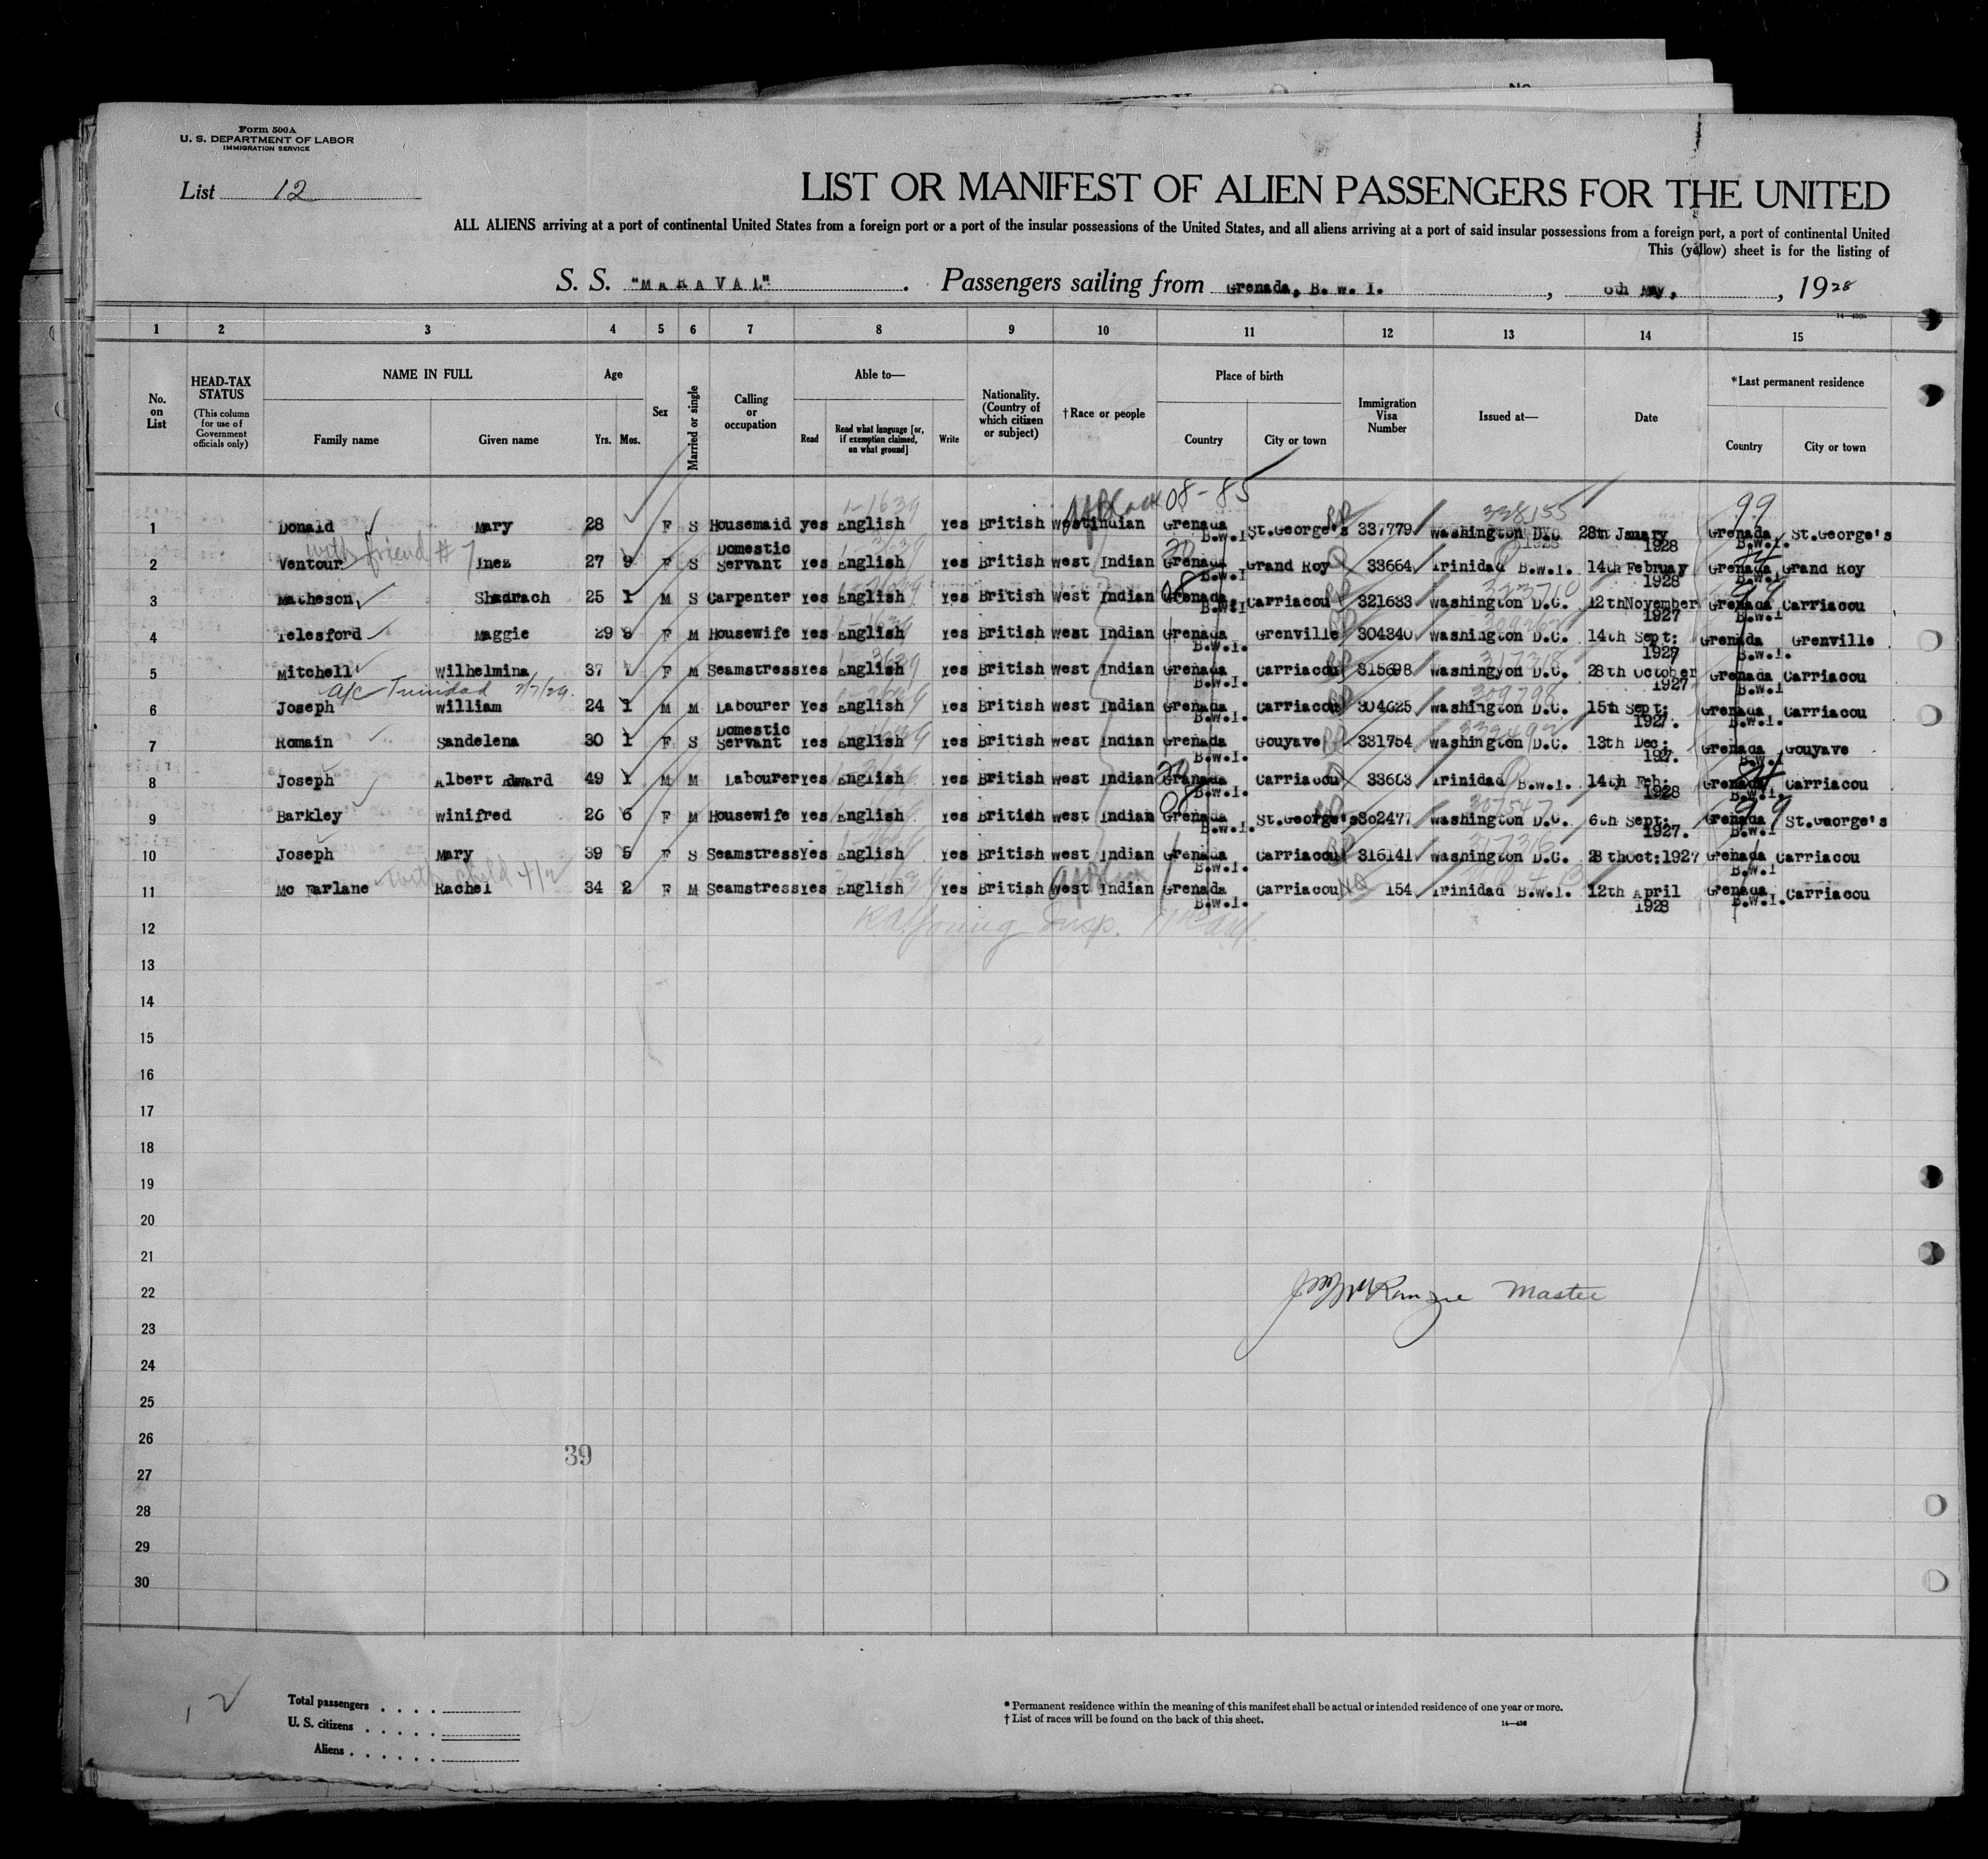 Form 500A
U. S. DEPARTMENT OF LABOR
IMMIGRATION SERVICE
List 12
LIST OR MANIFEST OF ALIEN PASSENGERS FOR THE UNITED
ALL ALIENS arriving at a port of continental United States from a foreign port or a port of the insular possessions of the United States, and all aliens arriving at a port of said insular possessions from a foreign port, a port of continental United
This (yellow) sheet is for the listing of
S. S. "MARAVAL". Passengers sailing from Grenada, B. W. I., May, , 1928
1 2 3 4 5 6 7 8 9 10 11 12 13 14 15
No. on List
HEAD-TAX STATUS (This column for use of Government officials only)
NAME IN FULL Family name Given name
Age Yrs. Mos.
Sex
Married or single
Calling or occupation
Able to— Read Read what language [or, if exemption claimed, on what ground] Write
Nationality. (Country of which citizen or subject)
†Race or people
Place of birth Country City or town
Immigration Visa Number
Issued at—
Date
*Last permanent residence Country City or town
08-85 338155 99
1 Donald Mary 28 F S Housemaid yes English Yes British Westindian Grenada B.W.I St.George's 337779 Washington D.C 28th Janary 1928 Grenada B.W.I. St.George's
with friend # 7
2 Ventour Inez 27 9 F S Domestic Servant Yes English Yes British West Indian Grenada B.W.I Grand Roy 33664 Trinidad B.W.I. 14th February 1928 Grenada B.W.I. Grand Roy
3 Matheson Shadrach 25 1 M S Carpenter Yes English Yes British West Indian Grenada. B.W.I Carriacou 321633 Washington D.C. 12thNovember 1927 Grenada B.W.I Carriacou
4 Telesford Maggie 29 F M Housewife Yes English Yes British West Indian Grenada B.W.I. Grenville 304340 Washington D.C. 14th Sept: 1927 Grenada B.W.I. Grenville
5 Mitchell Wilhelmina 37 F M Seamstress Yes English Yes British West Indian Grenada B.W.I. Carriacou 315698 Washingyon D.C. 28th October 1927 Grenada B.W.I Carriacou
a/c Trinidad 309798
6 Joseph William 24 1 M M Labourer Yes English Yes British West Indian Grenada B.W.I. Carriacou 304625 Washington D.C. 15th Sept: 1927. Grenada B.W.I. Carriacou
7 Romain Sandelena 30 1 F S Domestic Servant Yes English Yes British West Indian Grenada B.W.I. Gouyave 331754 Washington D.C. 13th Dec: 192. Grenada B.W.I Gouyave
8 Joseph Albert Edward 49 1 M M Labourer Yes English Yes British West Indian Granada B.W.I. Carriacou 33663 Trinidad B.W.I. 14th Feb: 1928 Grenada B.W.I. Carriacou
9 Barkley Winifred 26 6 F M Housewife Yes English Yes British West Indian Grenada B.W.I. St.George's 302477 Washington D.C. 6th Sept: 1927. Grenada B.W.I St.Gaorge's
10 Joseph Mary 39 5 F S Seamstress Yes English Yes British West Indian Grenada B.W.I. Carriacou 316141 Washington D.C. 28 thOct:1927 Grenada B.W.I Carriacou
with child
11 Mc Farlane Rachel 34 2 F M Seamstress Yes English Yes British West Indian Grenada B.W.I. Carriacou 154 Trinidad B.W.I. 12th April 1928 Grenada B.W.I. Carriacou
12
13
14
15
16
17
18
19
20
21
22 Master
23
24
25
26
39
27
28
29
30
Total passengers . . . .
U. S. citizens . . . . .
Aliens . . . . . .
* Permanent residence within the meaning of this manifest shall be actual or intended residence of one year or more.
† List of races will be found on the back of this sheet.